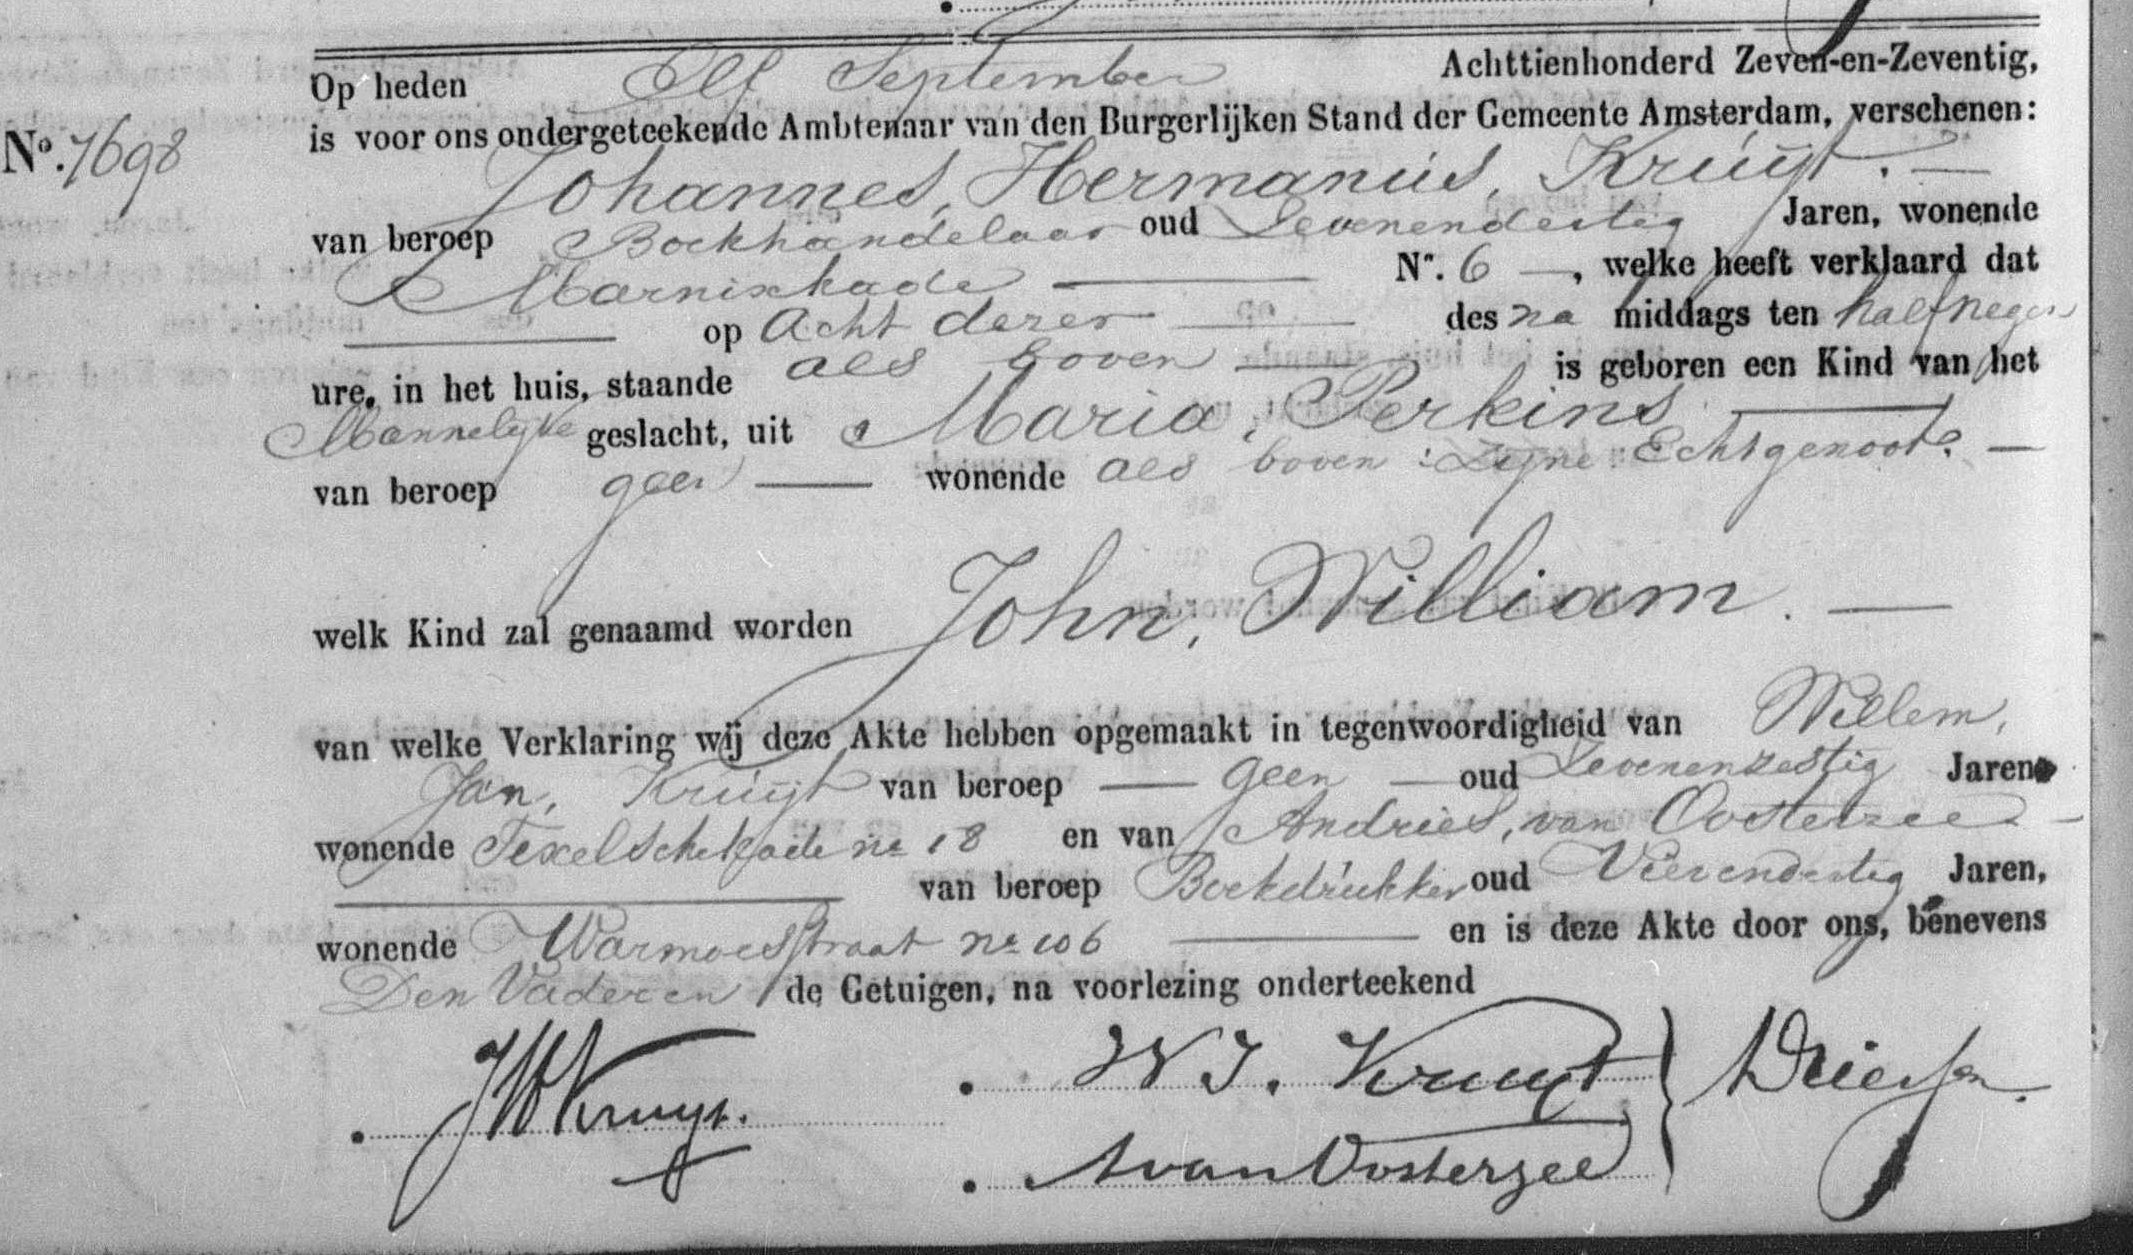 Op heden Elf September Achttienhonderd Zeven-en-Zeventig,
is voor ons ondergeteekende Ambtenaar van den Burgerlijken Stand der Gemeente Amsterdam, verschenen:
No. 7698
Johannes, Hermanus, Kruijt. —
van beroep Boekhandelaar oud Zevenendertig Jaren, wonende
Marnixkade — No. 6 —, welke heeft verklaard dat
— op Acht dezer — des na middags ten half negen
ure, in het huis, staande als boven — is geboren een Kind van het
Mannelijke geslacht, uit Maria, Perkins —
van beroep geen — wonende als boven: Zijne Echtgenoote. —
welk Kind zal genaamd worden John, William. —
van welke Verklaring wij deze Akte hebben opgemaakt in tegenwoordigheid van Willem,
Jan, Kruijt van beroep — geen — oud Zevenenzestig Jaren
wonende Texelschekade no 18 en van Andries, van Oosterzee —
— van beroep Boekdrukker oud Vierendertig Jaren,
wonende Warmoesstraat no 106 — en is deze Akte door ons, benevens
Den Vader en de Getuigen, na voorlezing onderteekend
JHKruyt.
W J. Kruyt
AvanOosterzee